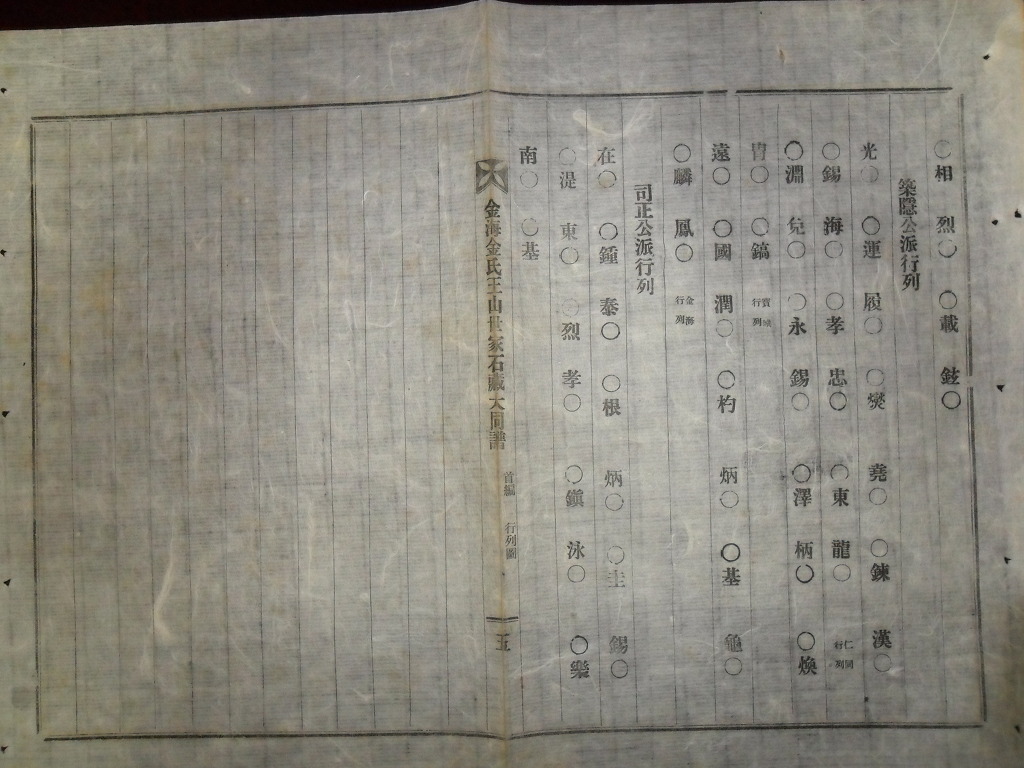 ○相 烈○ ○載 鉉○
築隱公派行列
光○ ○運 履○ ○燮 堯○ ○鍊 漢○
○錫 海○ ○孝 忠○ ○東 龍○ 仁同行列
○淵 兌○ ○永 錫○ ○澤 柄○ ○煥
胄○ ○鎬 寶城行列
遠○ ○國 潤○ ○杓 炳○ ○基 龜○
○麟 鳳○ 金海行列
司正公派行列
在○ ○鍾 泰○ ○根 炳○ ○圭 錫○
○湜 東○ ○烈 孝○ ○鎭 泳○ ○樂
南○ ○基
金海金氏王山世家石藏大同譜 首編 行列圖 五